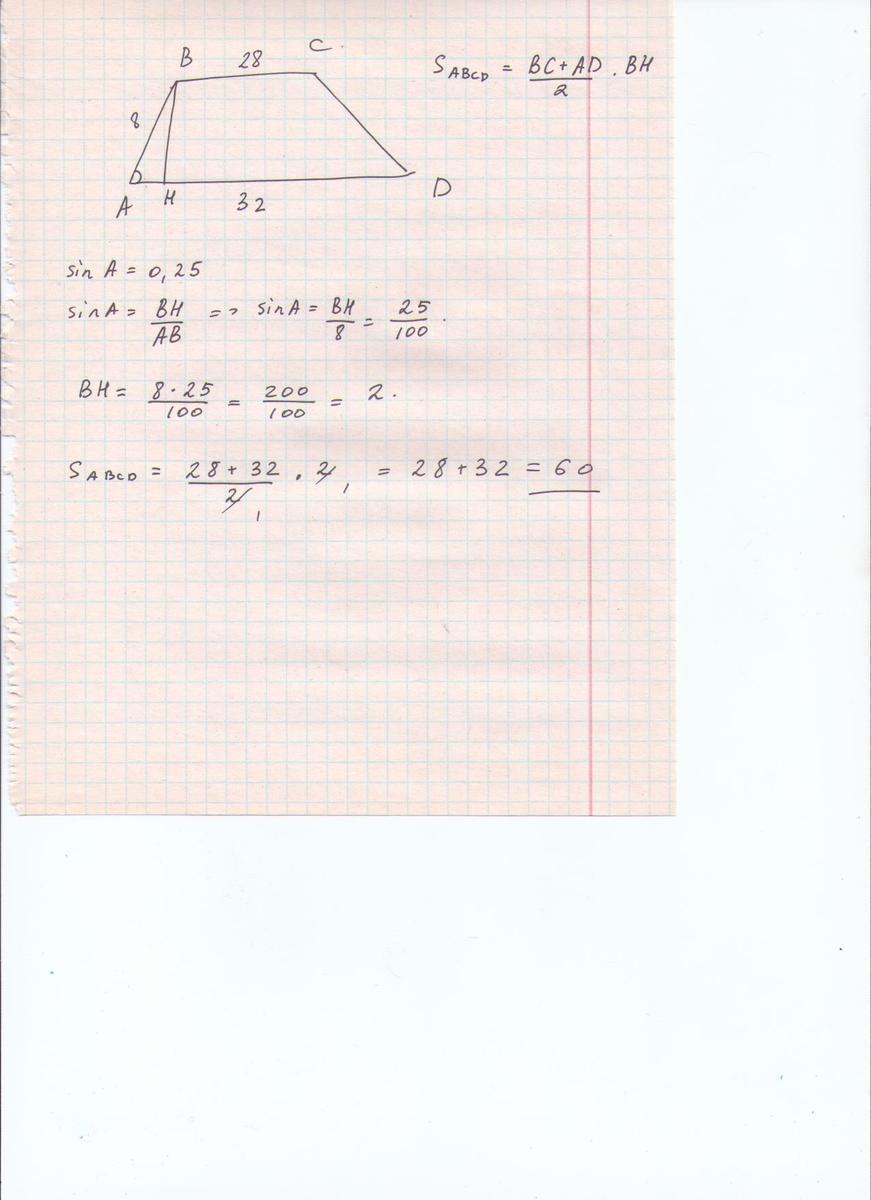 B 28 C
8
A H 32 D
S ABCD = BC + AD / 2 · BH
sin A = 0,25
sin A = BH / AB => sin A = BH / 8 = 25 / 100 .
BH = 8 · 25 / 100 = 200 / 100 = 2 .
S ABCD = 28 + 32 / 2 1 · 2 1 = 28 + 32 = 60